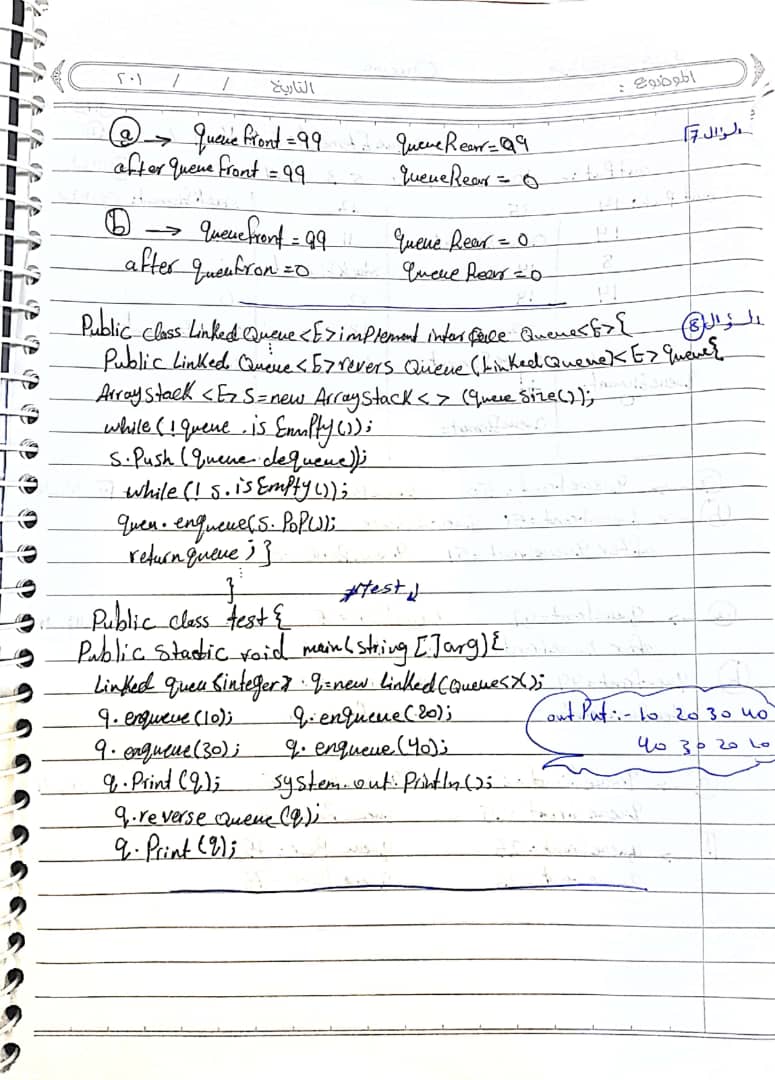 الموضوع :
التاريخ / / ٢٠١
السؤال 7
a → queue front = 99 queueRear = 99
after queue front = 99 queueRear = 0
b → queuefront = 99 queue Rear = 0
after queufron = 0 queue Rear = 0
السؤال 8
Public class Linked Queue<E> implement interface Queue<E>{
Public Linked Queue<E> revers Queue (Linked Queue)<E> queue{
ArrayStack <E> S = new ArrayStack <> (queue size());
while (! queue . is Empty ());
s. Push (queue. dequeue));
while (! s. is Empty ());
queu. enqueue(s. PoP());
return queue ; }
}
#test
Public class test {
Public Static void main (string [] arg) {
Linked queu <integer> q = new linked (Queue<>);
q. enqueue (10); q. enqueue (20);
q. enqueue (30); q. enqueue (40);
q. Print (q); system. out. Println ();
q. reverse queue (q);
q. Print (q);
out Put :- 10 20 30 40
40 30 20 10